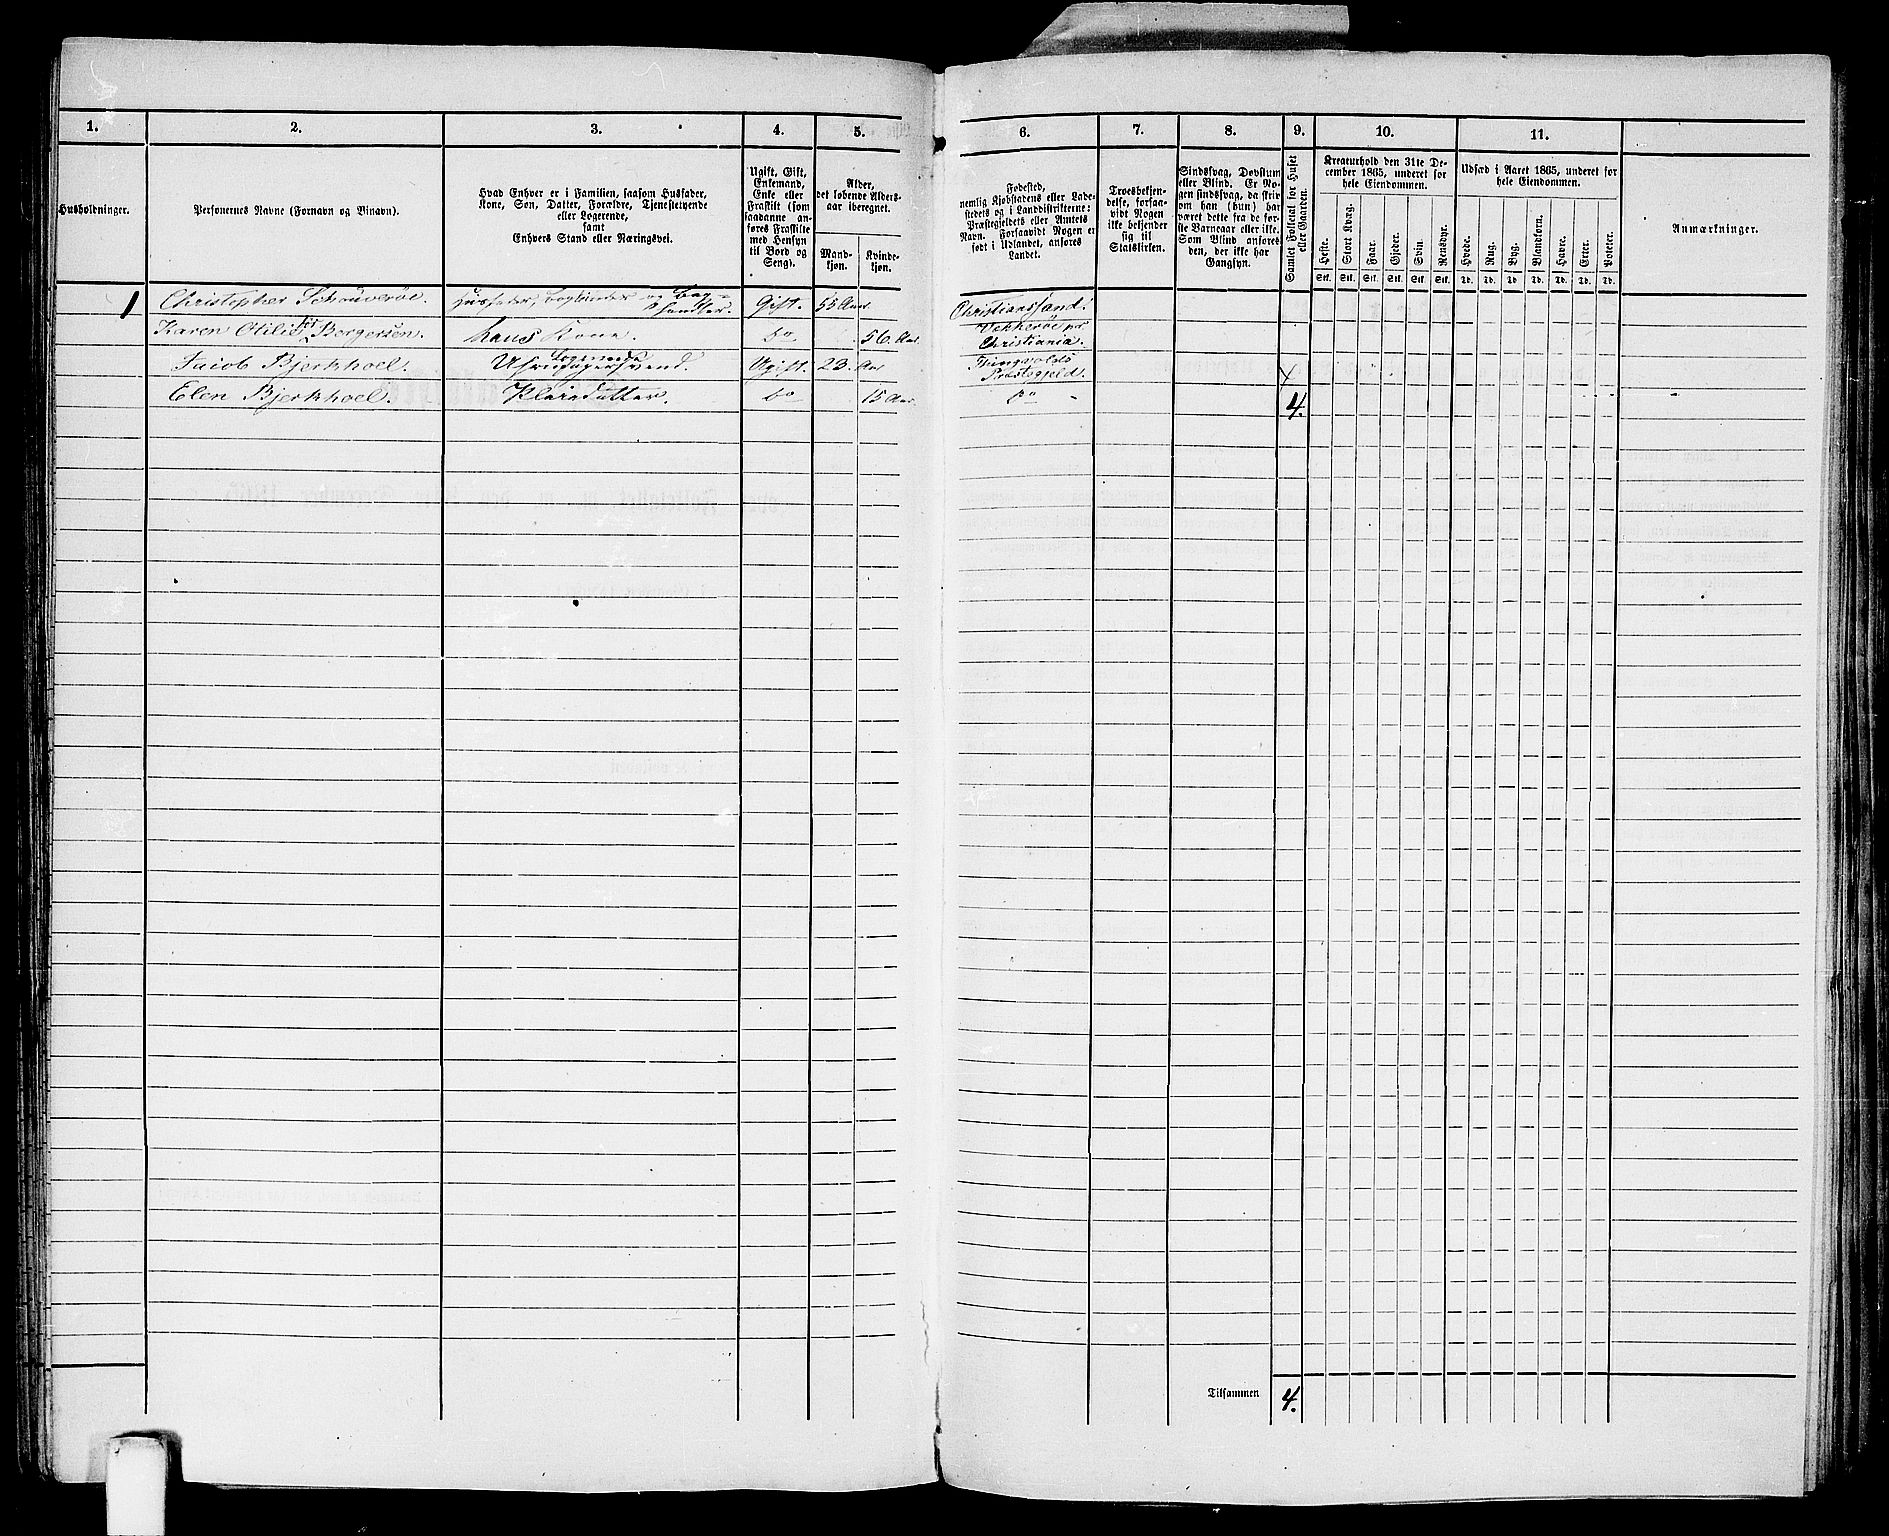 1.
2.
3.
4.
5.
6.
7.
8.
9.
10.
11.
Husholdninger.
Personernes Navne (Fornavn og Tilnavn).
Hvad Enhver er i Familien, saasom Husfader,
Kone, Søn, Datter, Forældre, Tjenestetyende
eller Logerende,
samt
Enhvers Stand eller Næringsvei.
Ugift, Gift,
Enkemand,
Enke eller
Fraskilt (som
saadanne an-
føres Fraskilte
med Hensyn
til Bord og
Seng).
Alder,
det løbende Alders-
aar iberegnet.
Mand-
kjøn.
Kvinde-
kjøn.
Fødested,
nemlig Kjøbstadens eller Lade-
stedets og i Landdistrikterne:
Præstegjeldets eller Amtets
Navn. Forsaavidt Nogen er
født i Udlandet, anføres
Landet.
Troesbekjen-
delse, forsaa-
vidt Nogen
ikke bekjender
sig til
Statskirken.
Sindssvag, Døvstum
eller Blind. Er No-
gen sindssvag, da skriv
om han (hun) har
været dette fra de før-
ste Barneaar eller ikke.
Som Blind anføres
den, der ikke har
Gangsyn.
Samlet Folketal for Huset
eller Gaarden.
Kreaturhold den 31te De-
cember 1865, underet for
hele Eiendommen.
Heste.
Stort Kvæg.
Faar.
Gjeder.
Svin.
Rensdyr.
Stk. Stk. Stk. Stk. Stk. Stk.
Udsæd i Aaret 1865, underet for
hele Eiendommen.
Hvede.
Rug.
Byg.
Blandkorn.
Havre.
Erter.
Poteter.
Td. Td. Td. Td. Td. Td. Td.
Anmærkninger.
1 Christopher Schouverøe. Husfader, bogbinder og bog-handler. Gift. 55 Aar Christianssand.
Karen Otilie Borgersen. hans Kone. do 56. Aar Christiania.
Jacob Bjerkhoel. Logerende Ugift. 23. Aar Tingvolds Præstegjeld.
Elen Bjerkhoel. do 15 Aar do 4.
Tilsammen 4.